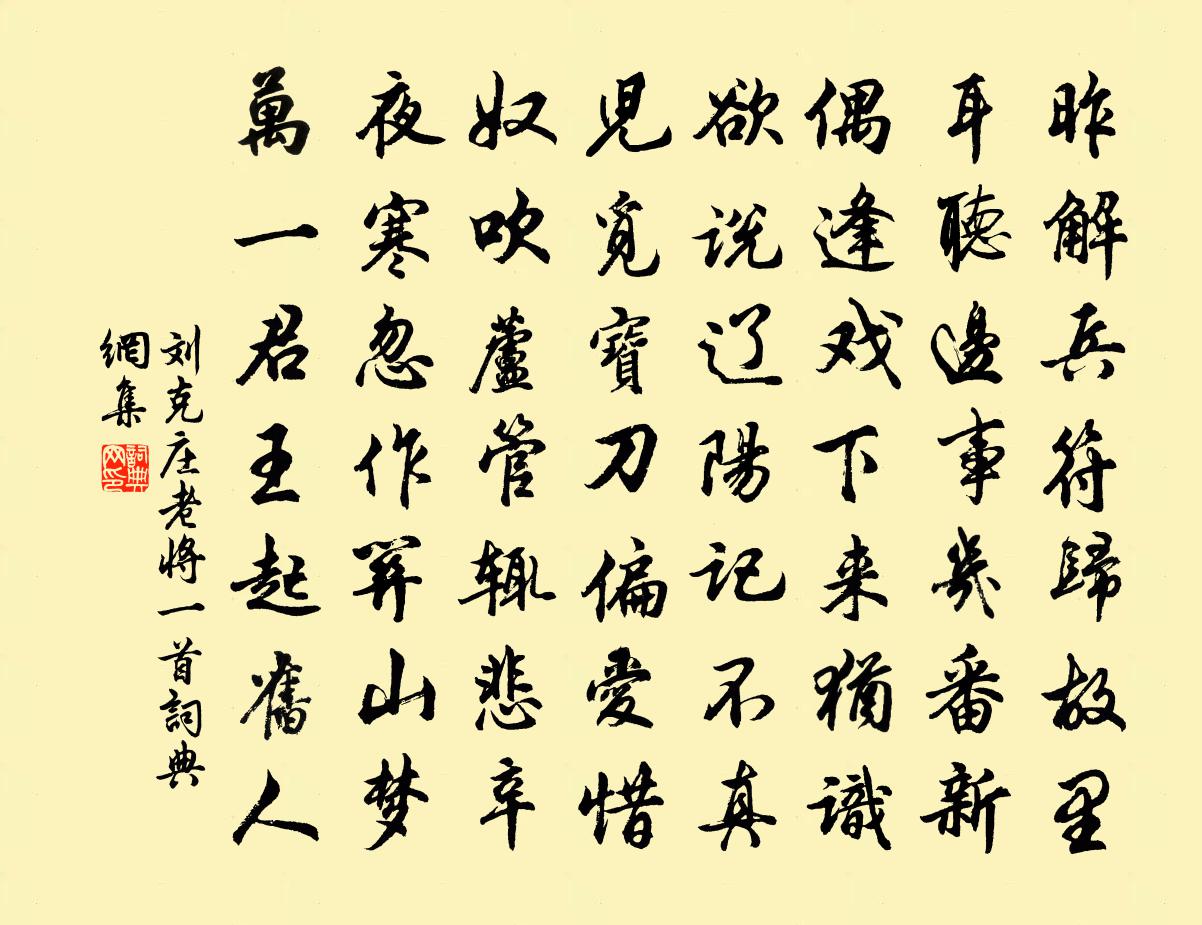 昨解兵符歸故里
耳聽邊事幾番新
偶逢戏下来猶識
欲说辽陽记不真
児覓寶刀偏愛惜
奴吹蘆管辄悲辛
夜寒忽作関山梦
萬一君王起舊人
刘克庄老將一首詞典
網集
詞典网印